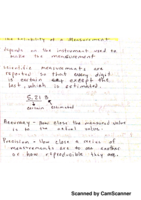 the reliability of a measurement
depends on the instrument used to
make the measurement
Scientific measurements are
reported so that every digit
is certain except the
last, which is estimated.
5.21 8
certain estimated
Accuracy - How close the measured value
is to the actual value.
Precision - How close a series of
measurements are to one another
or how reproducible they are.
Scanned by CamScanner